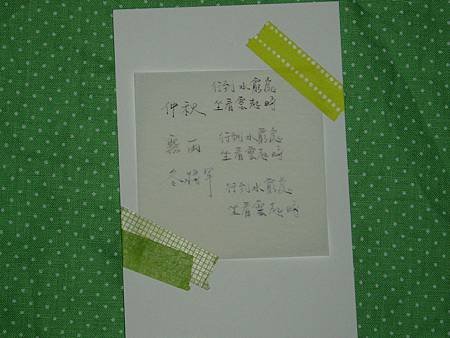 仲秋 行到水窮處
坐看雲起時
雨 行到水窮處
坐看雲起時
冬將軍 行到水窮處
坐看雲起時